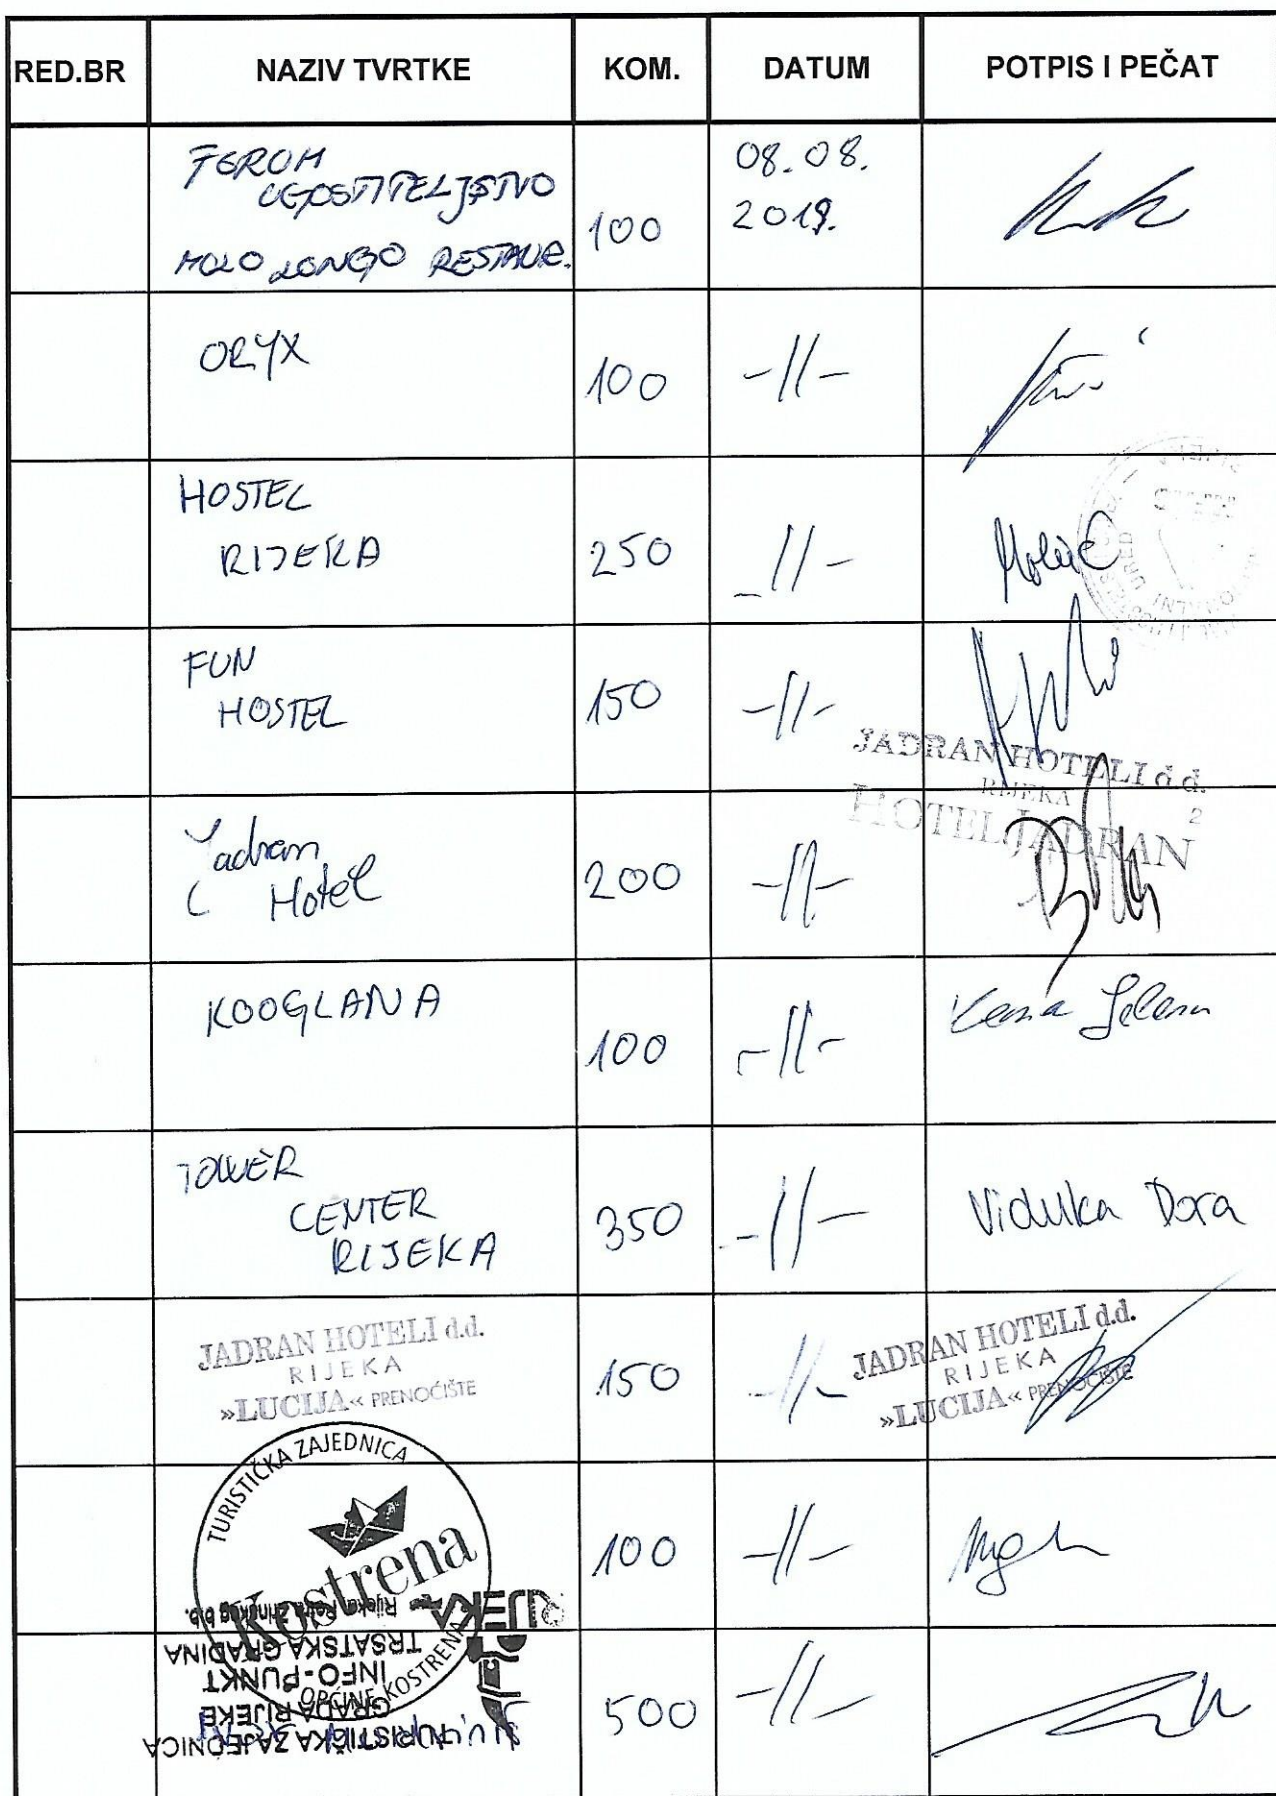 RED.BR NAZIV TVRTKE KOM. DATUM POTPIS I PEČAT
FEROM
UGOSTITELJSTVO
MOLO LONGO RESTAUR.
100
08.08.
2019.
ORYX 100 -//-
HOSTEL
RIJEKA
250 -//-
FUN
HOSTEL
150 -//-
JADRAN HOTELI d.d.
RIJEKA
2
HOTEL JADRAN
Jadran
Hotel
200 -//-
KOOGLANA
100 -//-
Jelena
TOWER
CENTER
RIJEKA
350 -//- Vidulka Dora
JADRAN HOTELI d.d.
RIJEKA
»LUCIJA« PRENOĆIŠTE
150 -//-
JADRAN HOTELI d.d.
RIJEKA
»LUCIJA« PRENOĆIŠTE
TURISTIČKA ZAJEDNICA
Kostrena
OPĆINE KOSTRENA
100 -//-
TURISTIČKA ZAJEDNICA
GRADA RIJEKE
INFO-PUNKT
TRSATSKA GRADINA
Rijeka, Petra Zrinskog b.b.
RIJEKA
500 -//-